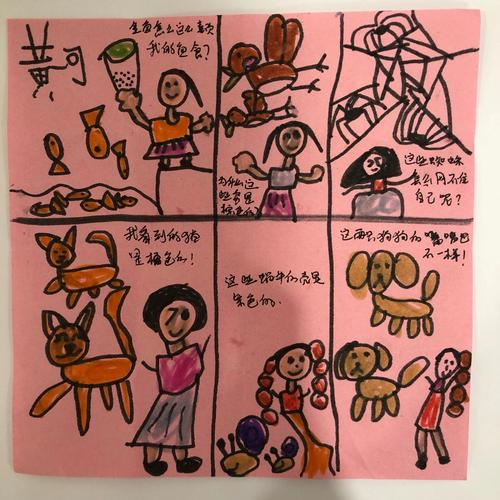 金鱼怎么这么喜欢
我的鱼食？
为什么这
些鸟是
棕色的？
这些蜘蛛
会网不住
自己呢？
我看到的猫
是橘色的！
这些蜗牛的壳是
紫色的.
这两只狗狗的嘴巴
不一样！